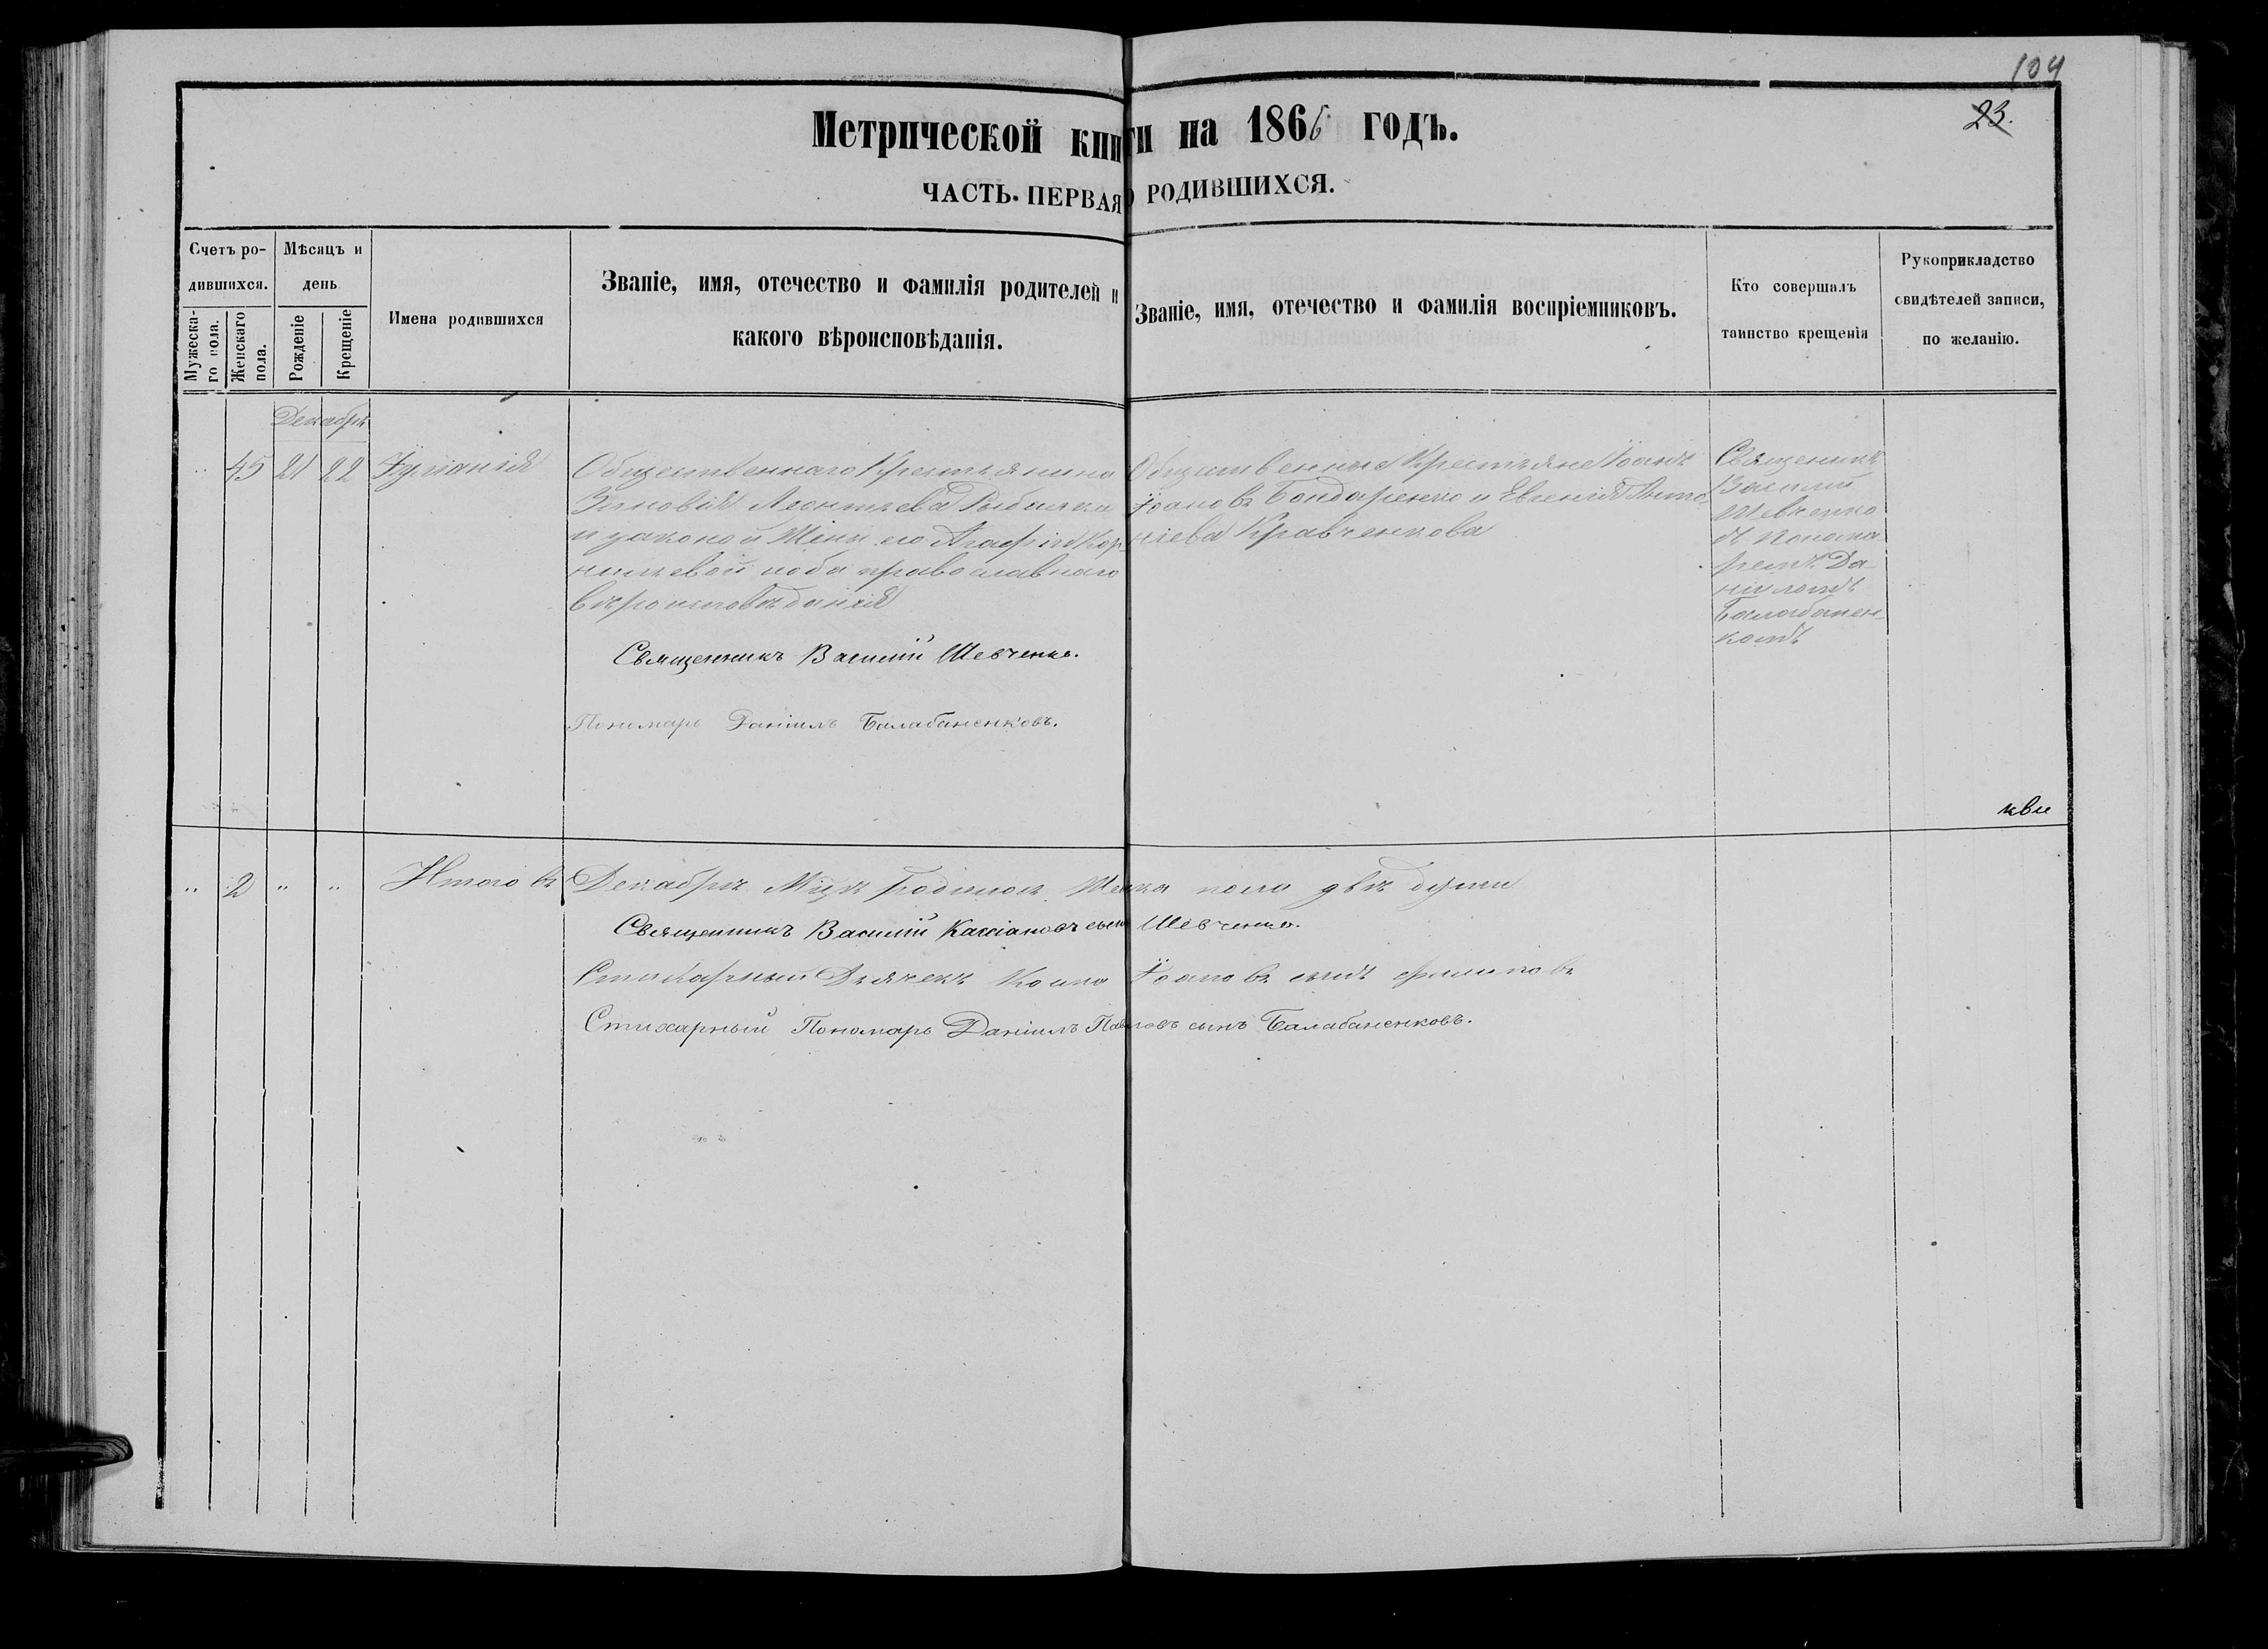 104
23.
Метрической книги на 1866 годъ.
ЧАСТЬ ПЕРВАЯ О РОДИВШИХСЯ.
Счетъ родившихся.
Мужескаго пола.
Женскаго пола.
Мѣсяцъ и день
Рожденіе
Крещеніе
Имена родившихся
Званіе, имя, отечество и фамилія родителей и
какого вѣроисповѣданія.
Званіе, имя, отечество и фамилія воспріемниковъ.
Кто совершалъ
таинство крещенія
Рукоприкладство
свидѣтелей записи,
по желанію.
Декабрь
45 21 22 Іуліанія
Общественнаго Крестьянина
Зиновія Леонтьева Рыбалка
и законой Жены его Агафіи Кор-
нильевой оба православнаго
вѣроисповѣданія
Священникъ Василій Шевченко.
Пономарь Даніилъ Балабаненковъ.
Общественные Крестьяне Іоанъ
Іоановъ Бондаренко и Евгенія Анто-
ніева Кравченкова
Священикъ
Василий
Шевченко
съ Понома-
ремъ Да-
ніиломъ
Балабанен-
комъ
" 2 " " Итого въ Декабрѣ Мцѣ Родилось Женска пола двѣ души
Священникъ Василій Кассіановъ сынъ Шевченко.
Стихарный Дьячекъ Іоановъ сынъ Филиповъ
Стихарный Пономарь Даніилъ Павловъ сынъ Балабаненковъ.